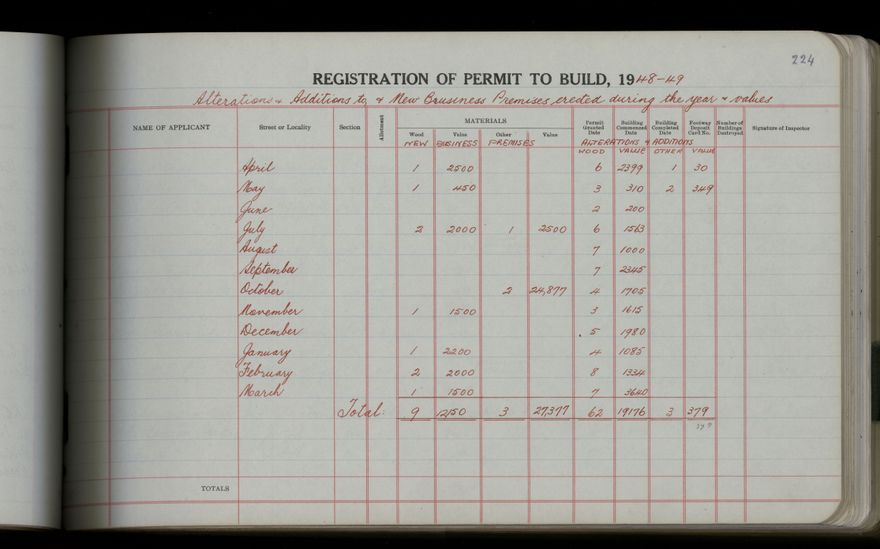 224
REGISTRATION OF PERMIT TO BUILD, 1948-49
Alterations & Additions to, & New Brusiness Premises erected during the year & values
NAME OF APPLICANT Street or Locality Section Allotment MATERIALS Permit Granted Date Building Commenced Date Building Completed Date Footway Deposit Card No. Number of Buildings Destroyed Signature of Inspector
Wood Value Other Value
NEW BUSINESS PREMISES ALTERATIONS & ADDITIONS
WOOD VALUE OTHER VALUE
April 1 2500 6 2399 1 30
May 1 450 3 310 2 349
June 2 200
July 2 2000 1 2500 6 1563
August 7 1000
September 7 2345
October 2 24,877 4 1705
November 1 1500 3 1615
December 5 1980
January 1 2200 4 1085
February 2 2000 8 1334
March 1 1500 7 3640
Total: 9 12150 3 27377 62 19176 3 379
TOTALS